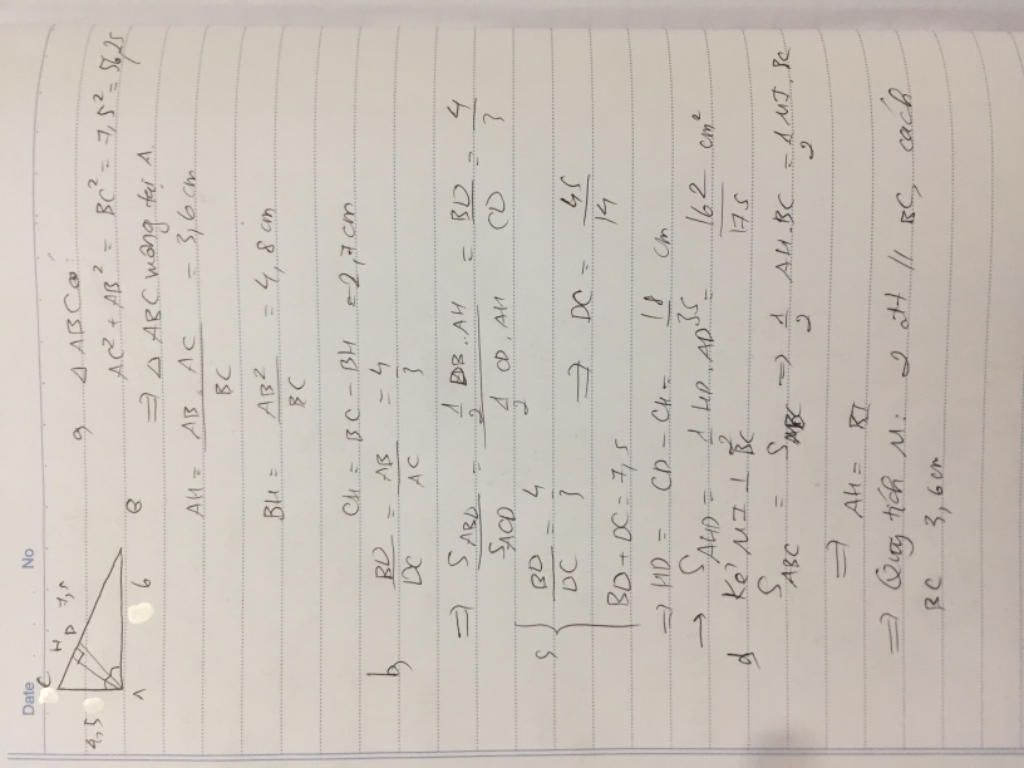 Date No
C
H
D 7,5
4,5
A 6 B
a, Δ ABC có:
AC² + AB² = BC² = 7,5² = 56,25
⇒ Δ ABC vuông tại A
AH = AB . AC / BC = 3,6 cm
BH = AB² / BC = 4,8 cm
CH = BC - BH = 2,7 cm
b, BD / DC = AB / AC = 4 / 3
⇒ S ABD / S ACD = 1/2 DB . AH / 1/2 CD . AH = BD / CD = 4 / 3
c, { BD / DC = 4 / 3
BD + DC = 7,5 ⇒ DC = 45 / 14
⇒ HD = CD - CH = 18 / 35 cm
→ S AHD = 1/2 HD . AD = 162 / 175 cm²
d, Kẻ MI ⊥ BC
S ABC = S MBC ⇒ 1/2 AH . BC = 1/2 MI . BC
⇒ AH =
⇒ Quỹ tích M: 2 đt // BC, cách
BC 3,6 cm